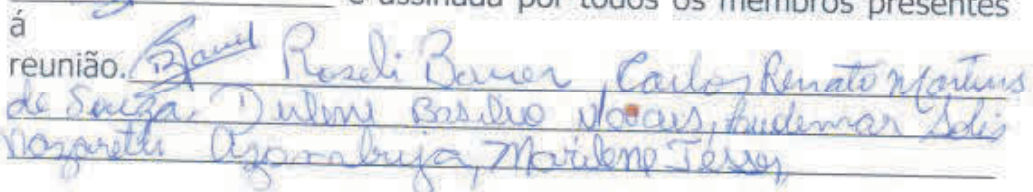 e assinada por todos os membros presentes
á
reunião. Roseli Bauer, Carlos Renato Martins
de Souza, Dulene Basilio Morais, Ludemar Solis
Nazareth Azambuja, Marilene Tesser,